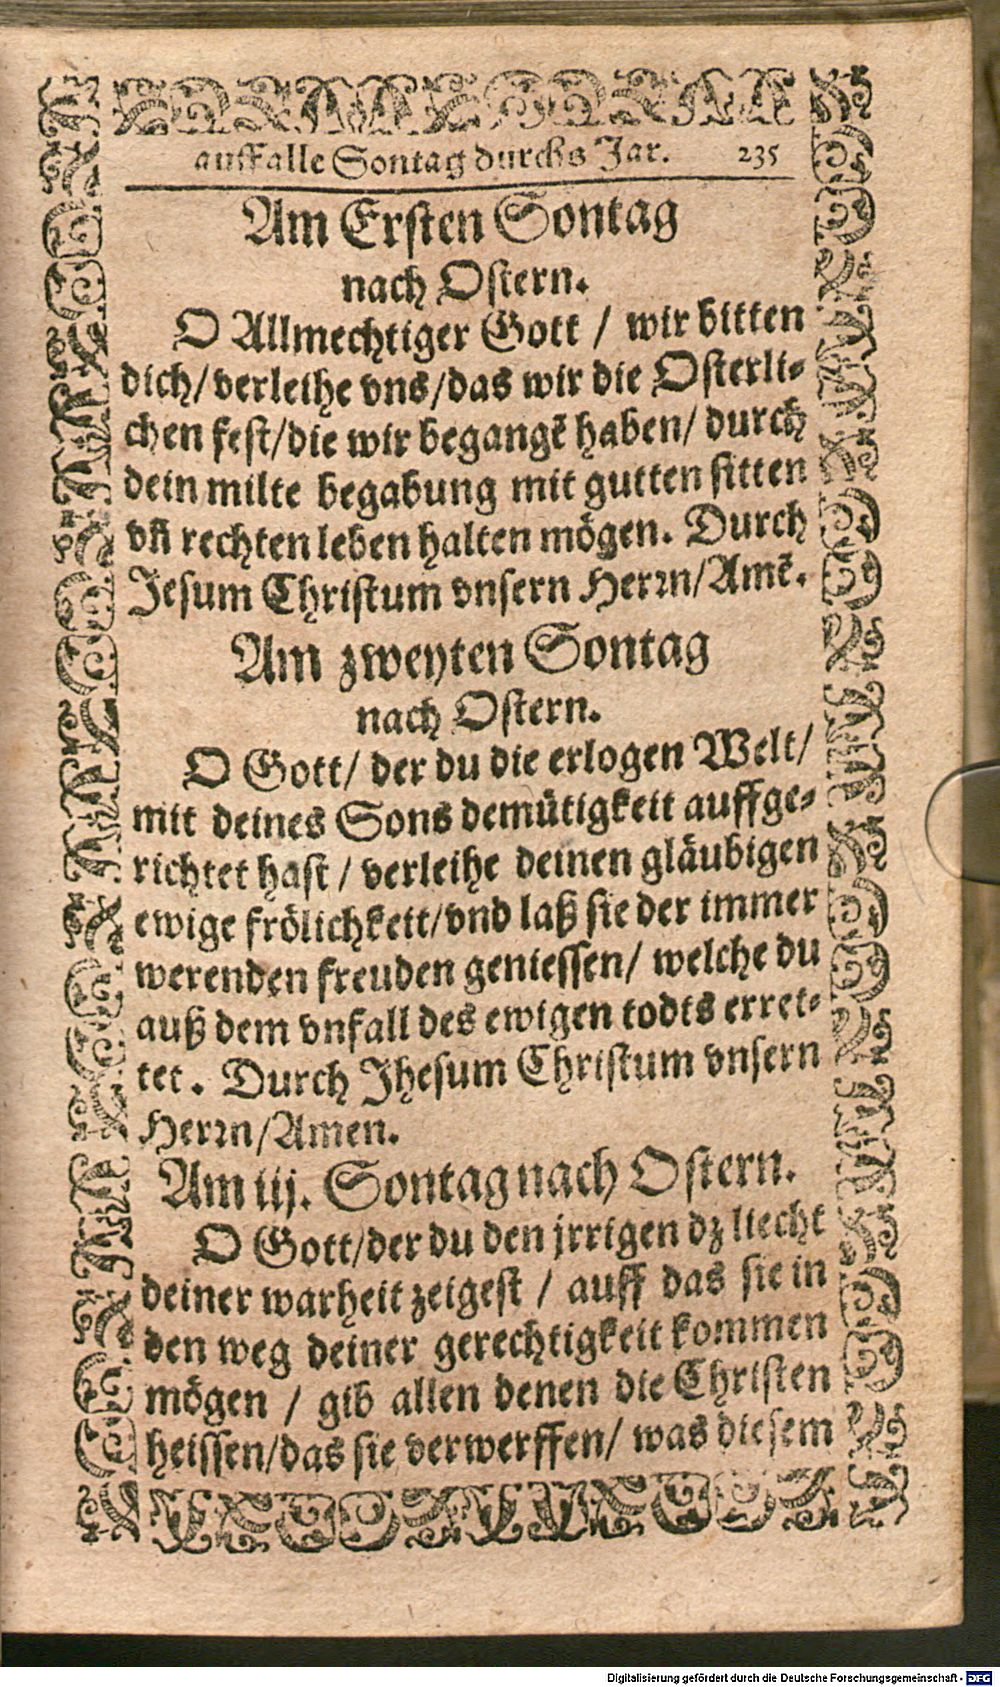 auff alle Sontag durchs Jar. 235
Am Ersten Sontag
nach Ostern.
O Allmechtiger Gott / wir bitten
dich/ verleihe vns/das wir die Osterli-
chen fest/die wir begangẽ haben/ durch
dein milte begabung mit gutten sitten
vñ rechten leben halten mögen. Durch
Jesum Christum vnsern Herrn/Amẽ.
Am zweyten Sontag
nach Ostern.
O Gott/ der du die erlogen Welt/
mit deines Sons demütigkeit auffge-
richtet hast / verleihe deinen gläubigen
ewige frölichkeit/vnd laß sie der immer
werenden freuden geniessen/ welche du
auß dem vnfall des ewigen todts erret-
tet. Durch Jhesum Christum vnsern
Herrn/Amen.
Am iij. Sontag nach Ostern.
O Gott/der du den jrrigen dz liecht
deiner warheit zeigest / auff das sie in
den weg deiner gerechtigkeit kommen
mögen / gib allen denen die Christen
heissen/das sie verwerffen/ was diesem
Digitalisierung gefördert durch die Deutsche Forschungsgemeinschaft - DFG